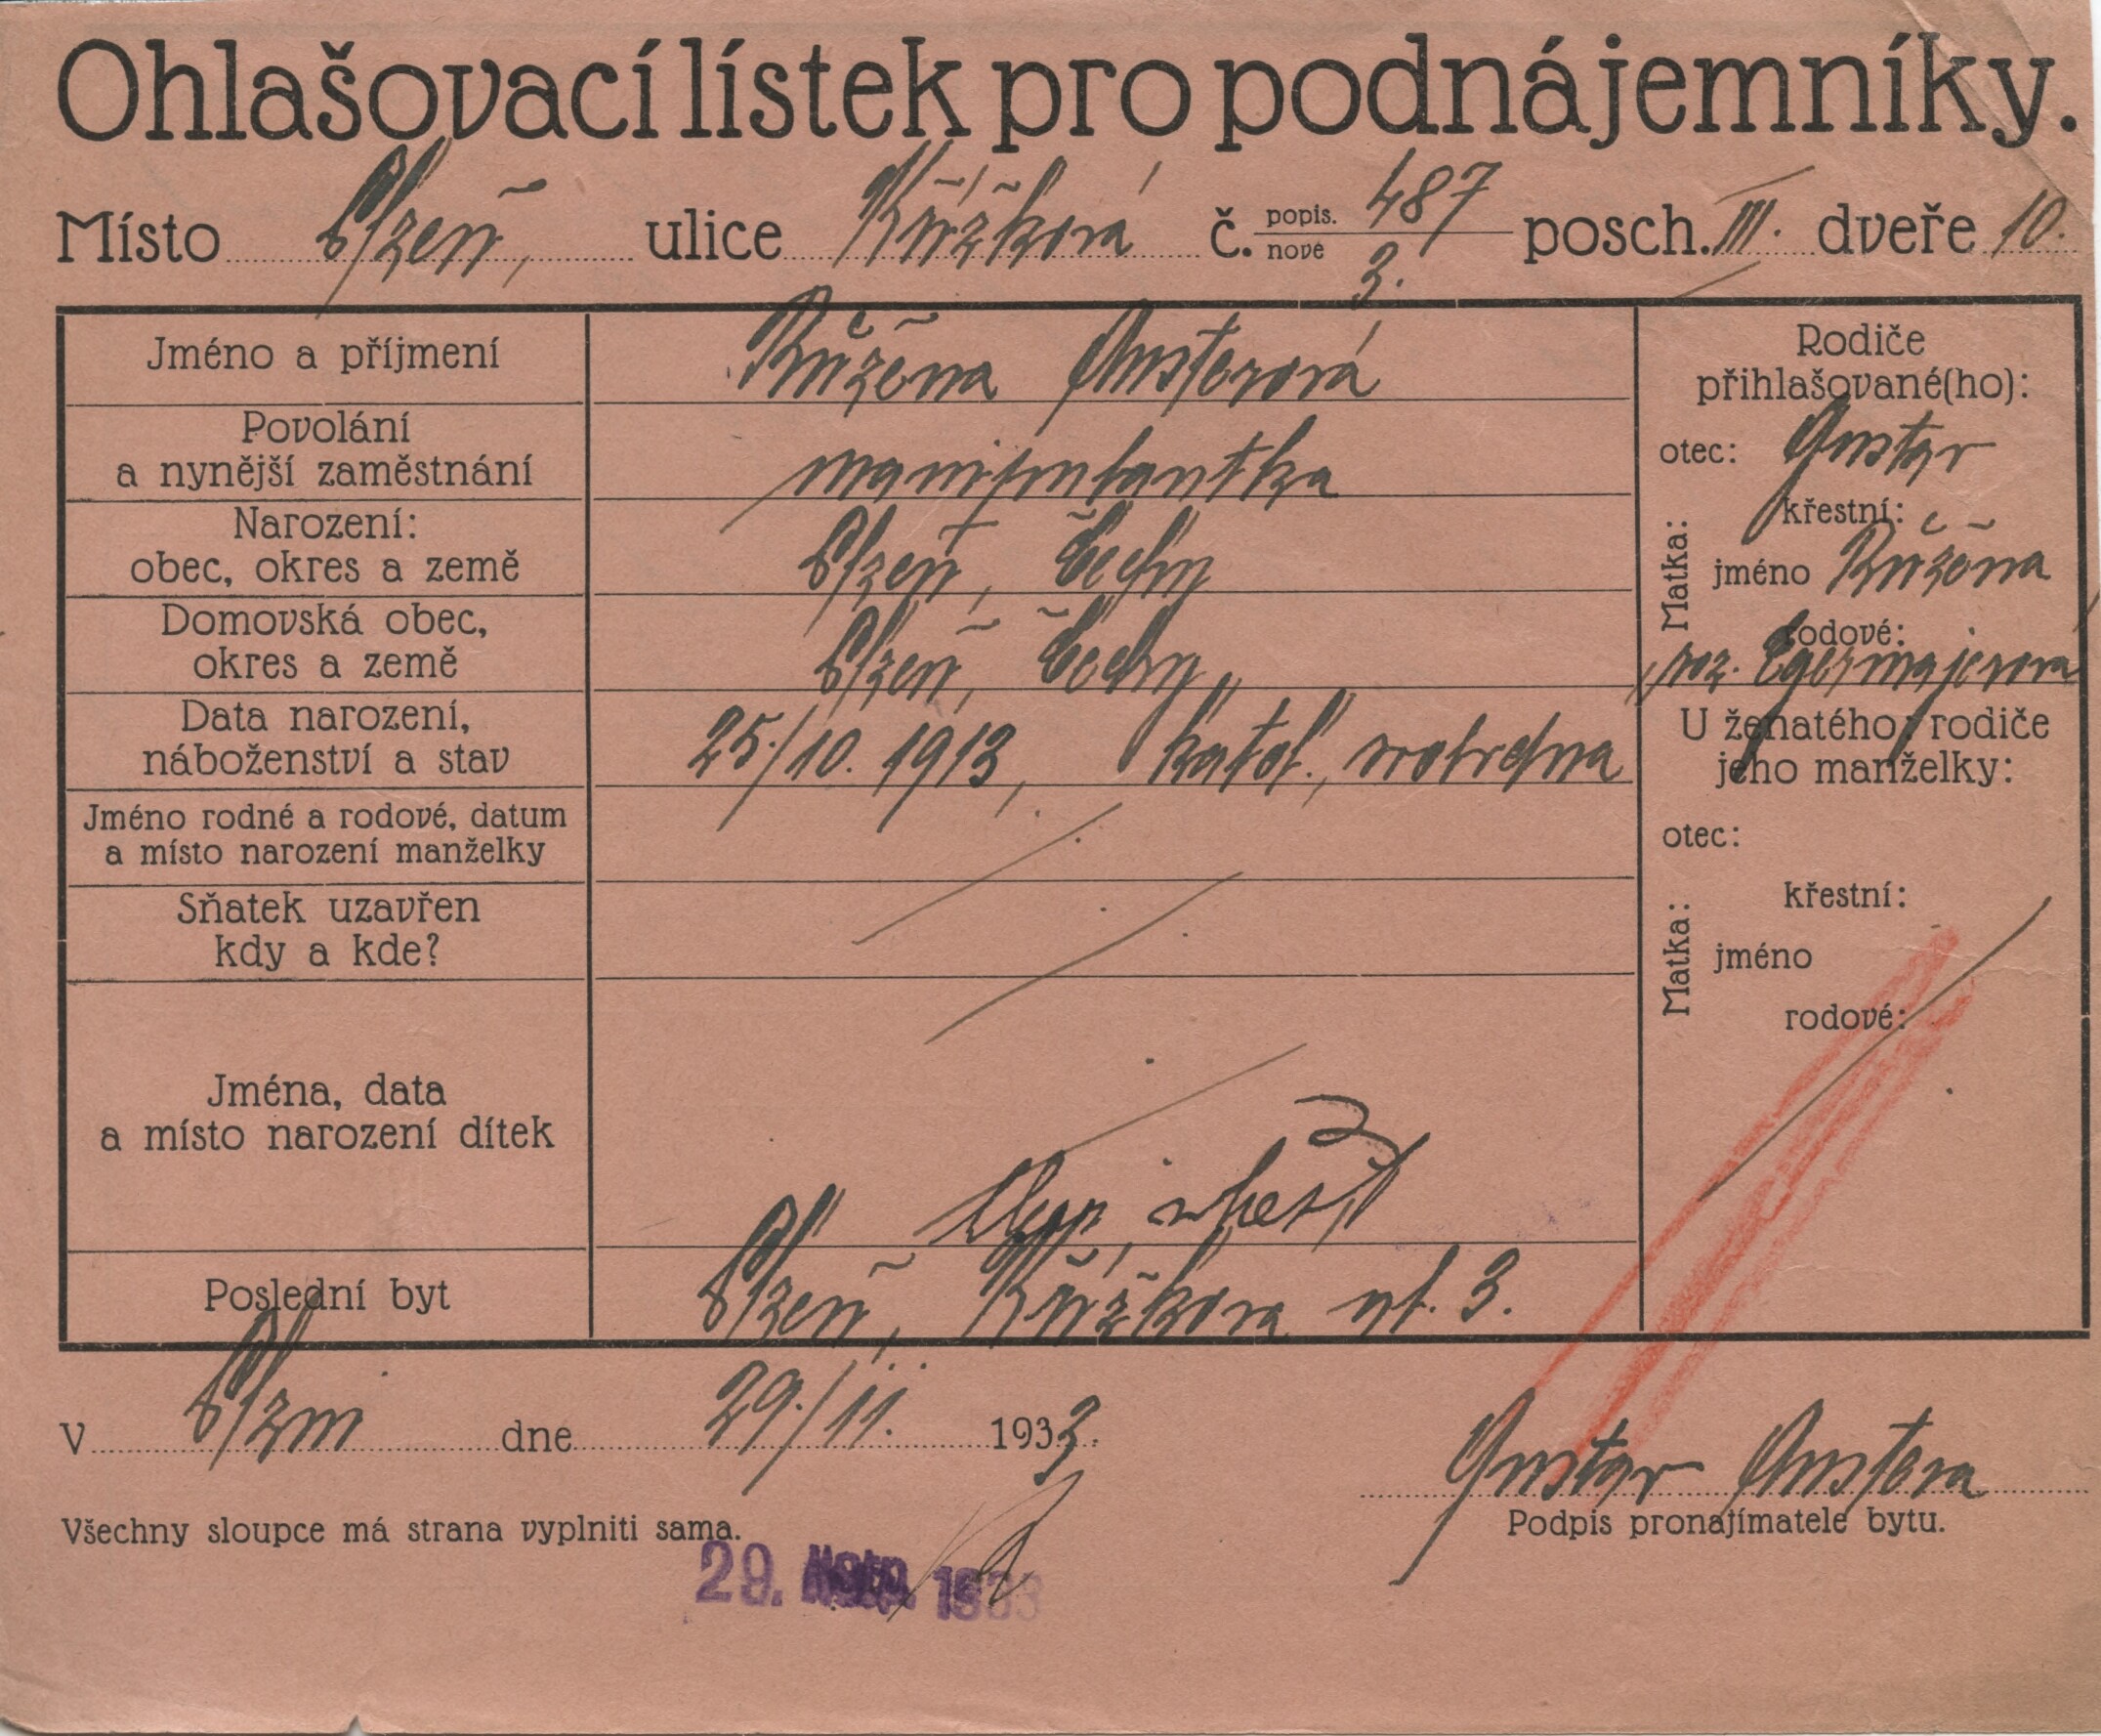 Ohlašovací lístek pro podnájemníky.
Místo Plzeň, ulice Křížková č. popis. 487 nové 3. posch. III. dveře 10.
Jméno a příjmení Růžena Austerová
Povolání a nynější zaměstnání manipulantka
Narození: obec, okres a země Plzeň, Čechy
Domovská obec, okres a země Plzeň, Čechy,
Data narození, náboženství a stav 25./10. 1913, katol., svobodna
Jméno rodné a rodové, datum a místo narození manželky
Sňatek uzavřen kdy a kde?
Jména, data a místo narození dítek
Poslední byt Plzeň, Křížkova ul. 3.
Rodiče přihlašované(ho):
otec: Gustav
Matka: křestní:
jméno Růžena
rodové:
roz.
U ženatého: rodiče jeho manželky:
otec:
Matka: křestní:
jméno
rodové:
V Plzni dne 29./11. 1933.
Gustav Austera
Podpis pronajímatele bytu.
Všechny sloupce má strana vyplniti sama.
29. 1933